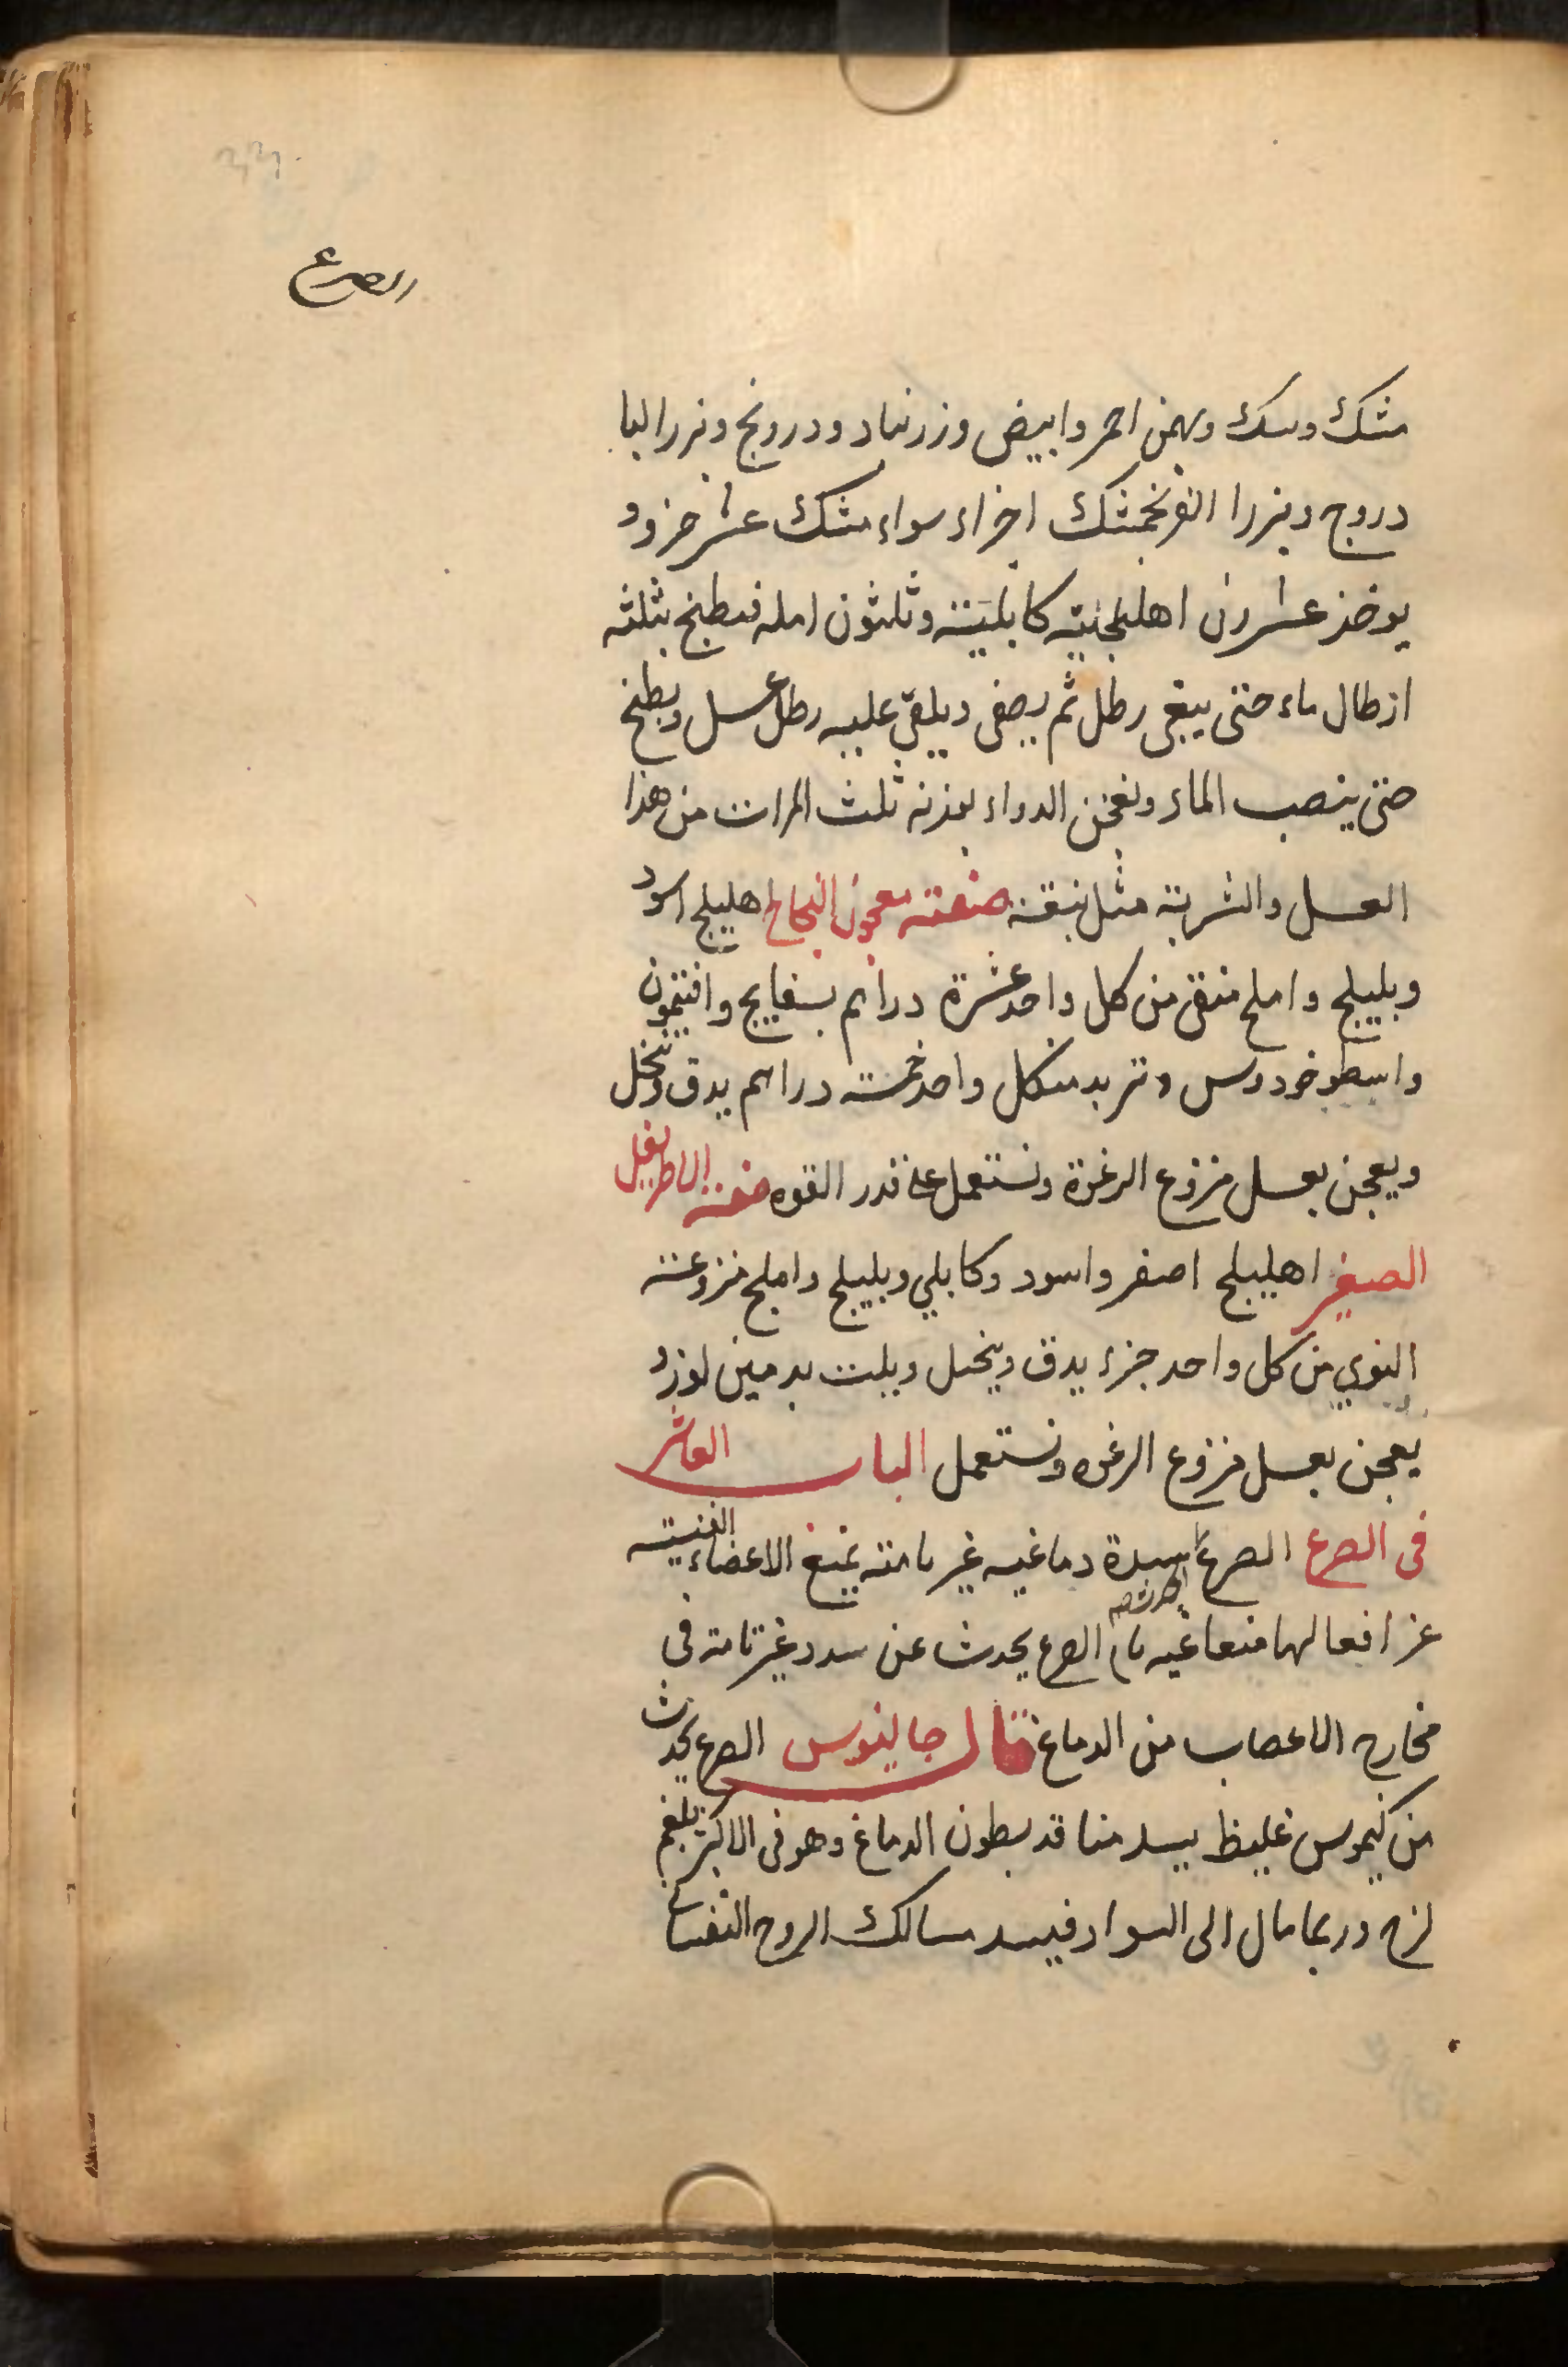 الصرع
مشك وسك وبهمن احمر وابيض وزرنباد ودرونج وبزر البا
دروج وبزر الفرنجمشك اجزاء سواء مشك عشر جزوو
يوخذ عشرون اهليلجية كابلية وثلثون امله فيطبخ بثلثه
ارطال ماء حتى يبقى رطل ثم يصفى ويلقى عليه رطل عسل ويطبخ
حتى ينصب الماء ويعجن الدواء بوزنه ثلث المرات من هذا
العسل والشربة مثل نبقة صنعته معجون النجاح اهليلج اسود
وبليلج واملج منقى من كل واحد عشرة دراهم بسفايج وافتيمون
واسطوخودوس وتربد من كل واحد خمسه دراهم يدق وينخل
ويعجن بعسل منزوع الرغوة ونستعمل على قدر القوه صنعة الاطريفل
الصغير اهليلج اصفر واسود وكابلي وبليلج واملج منزوعته
النوي من كل واحد جزء يدق وينخل ويلت بدهن لوز و
يعجن بعسل منزوع الرغوه ونستعمل الباب العاشر
فى الصرع الصرع سدة دماغيه غير تامته يمنع الاعضاء النفسيته
عن افعالها منعا غير تام الصرع يحدث عن سدد غير تامة فى
مخارج الاعصاب من الدماغ قال جالينوس الصرع يحدث
من كيموس غليظ يسد منافذ بطون الدماغ وهو فى الاكثر بلغم
لزج وربما مال الى السواد فيسد مسالك الروح النفسا